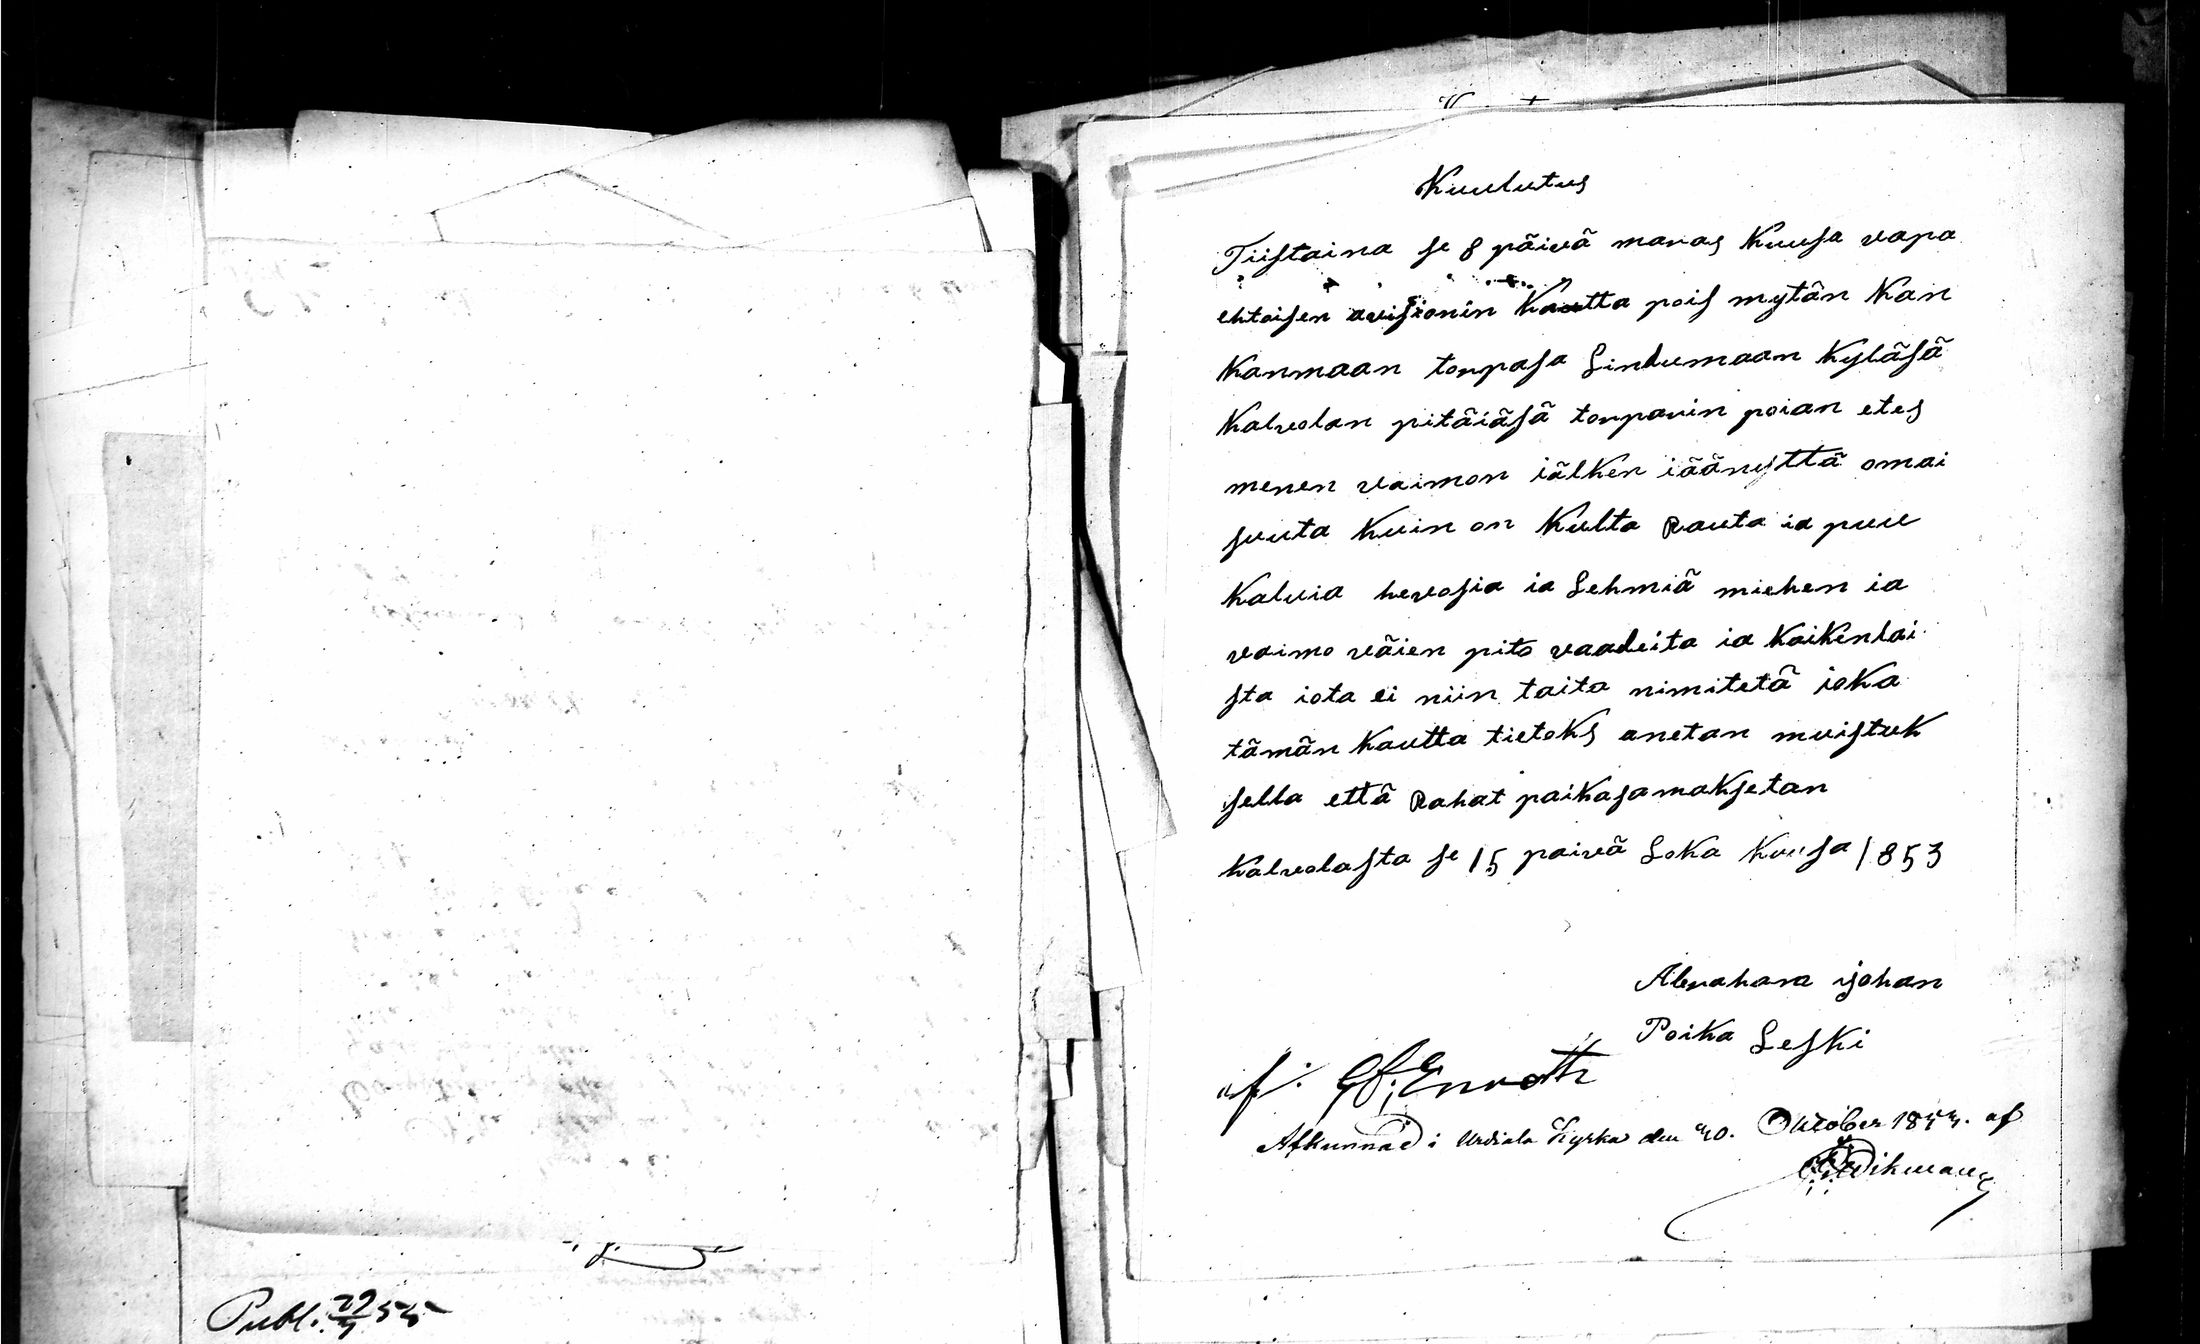 Kuulutus
Tiistaina se 8 päivä maras Kuusa vapa
ehtoisen avisionin Kautta pois mytän Kan
Kanmaan torpasa Lintumaan Kyläsä
Kalvolan pitäiäsä torparin poian etes
menen vaimon iälken iäänyttä omai
suuta Kuin on Kulta Rauta ia puu
Kaluia hevosia ia Lehmiä miehen ia
vaimo väien pito vaadeita ia Kaikenlai
sta iota ei niin taita nimitetä ioka
tämän Kautta tietoks anetan muistuk
sella että Rahat paikasa maksetan
Kalvolasta se 15 paivä Loka Kuusa 1853
Abraham johan
Poika Leski
af: Enroth
Afkunnad i Urdiala Kyrka den 30. Oktober 1853. af
Wikman
Publ. 29/4 55